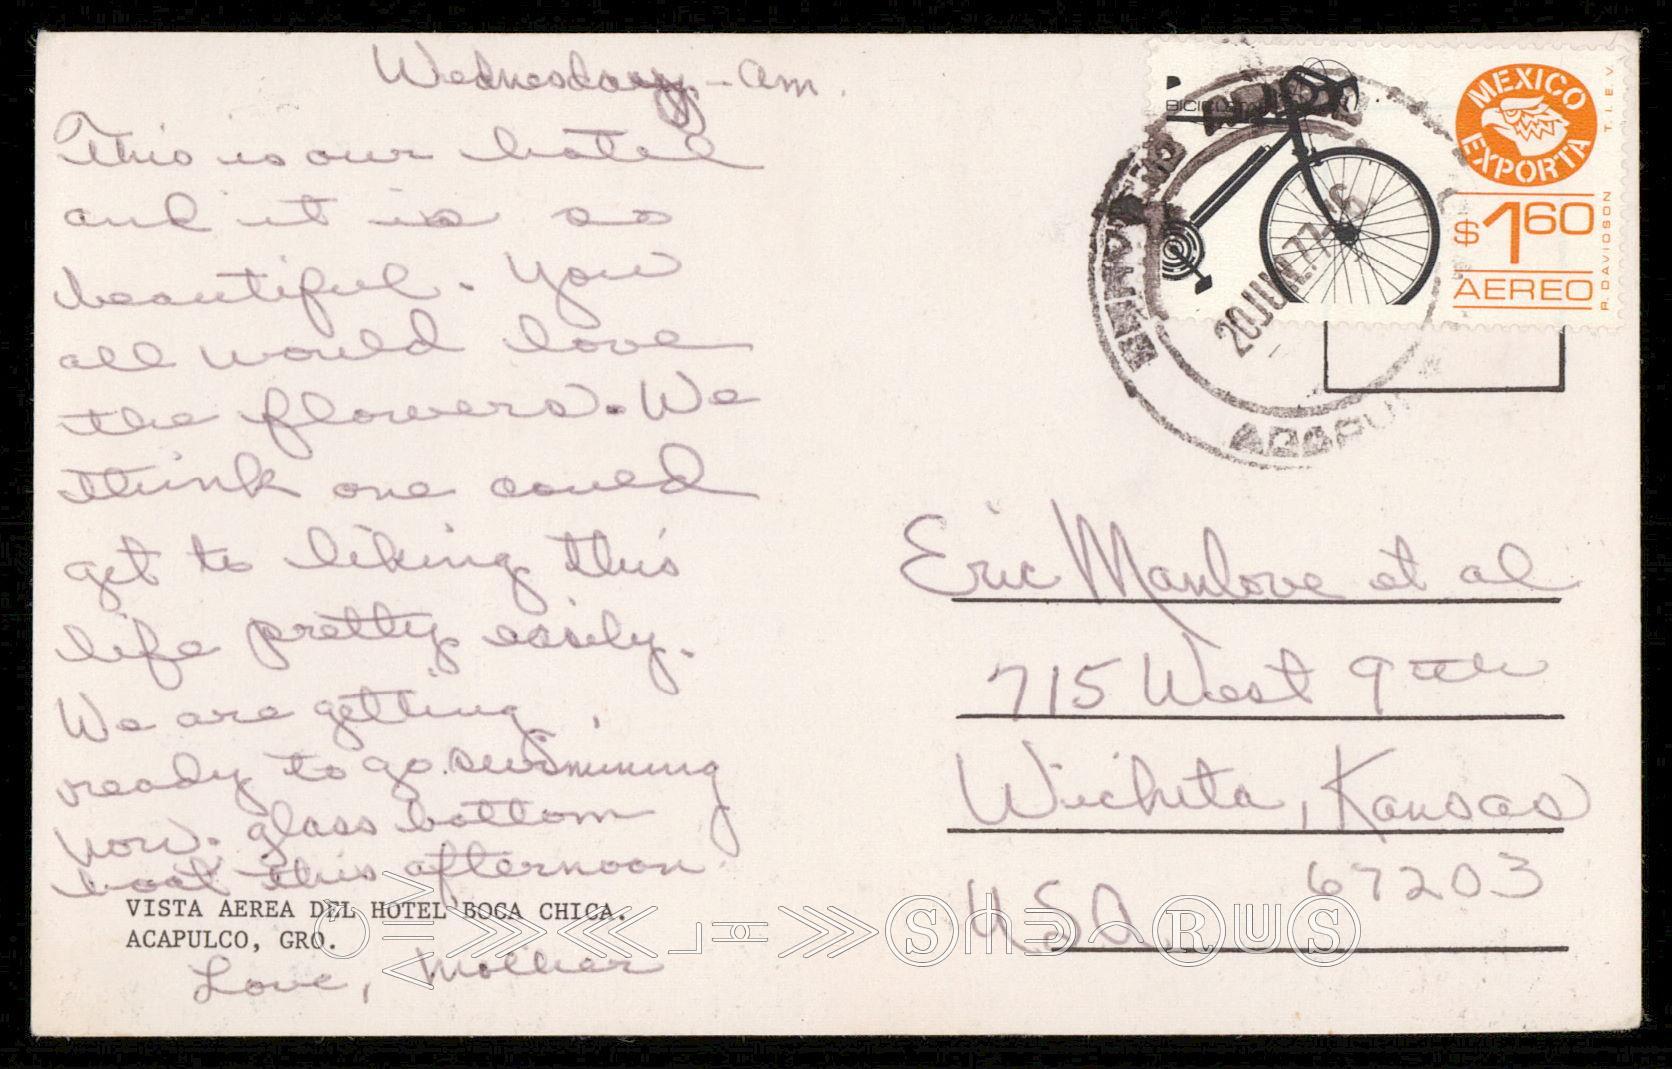 Wednesday - am.
This is our hotel
and it is so
beautiful. You
all would love
the flowers. We
think one could
get to liking this
life pretty easily.
We are getting
ready to go swimming
now. glass bottom
boat this afternoon
VISTA AEREA DEL HOTEL BOCA CHICA.
ACAPULCO, GRO.
Love, Mother
MEXICO
EXPORTA
$1.60
AEREO
P. DAVIDSON
T.I.E.V.
20 JUN. 77
ACAPU
Eric Manlove et al
715 West 9th
Wichita, Kansas
67203
USA